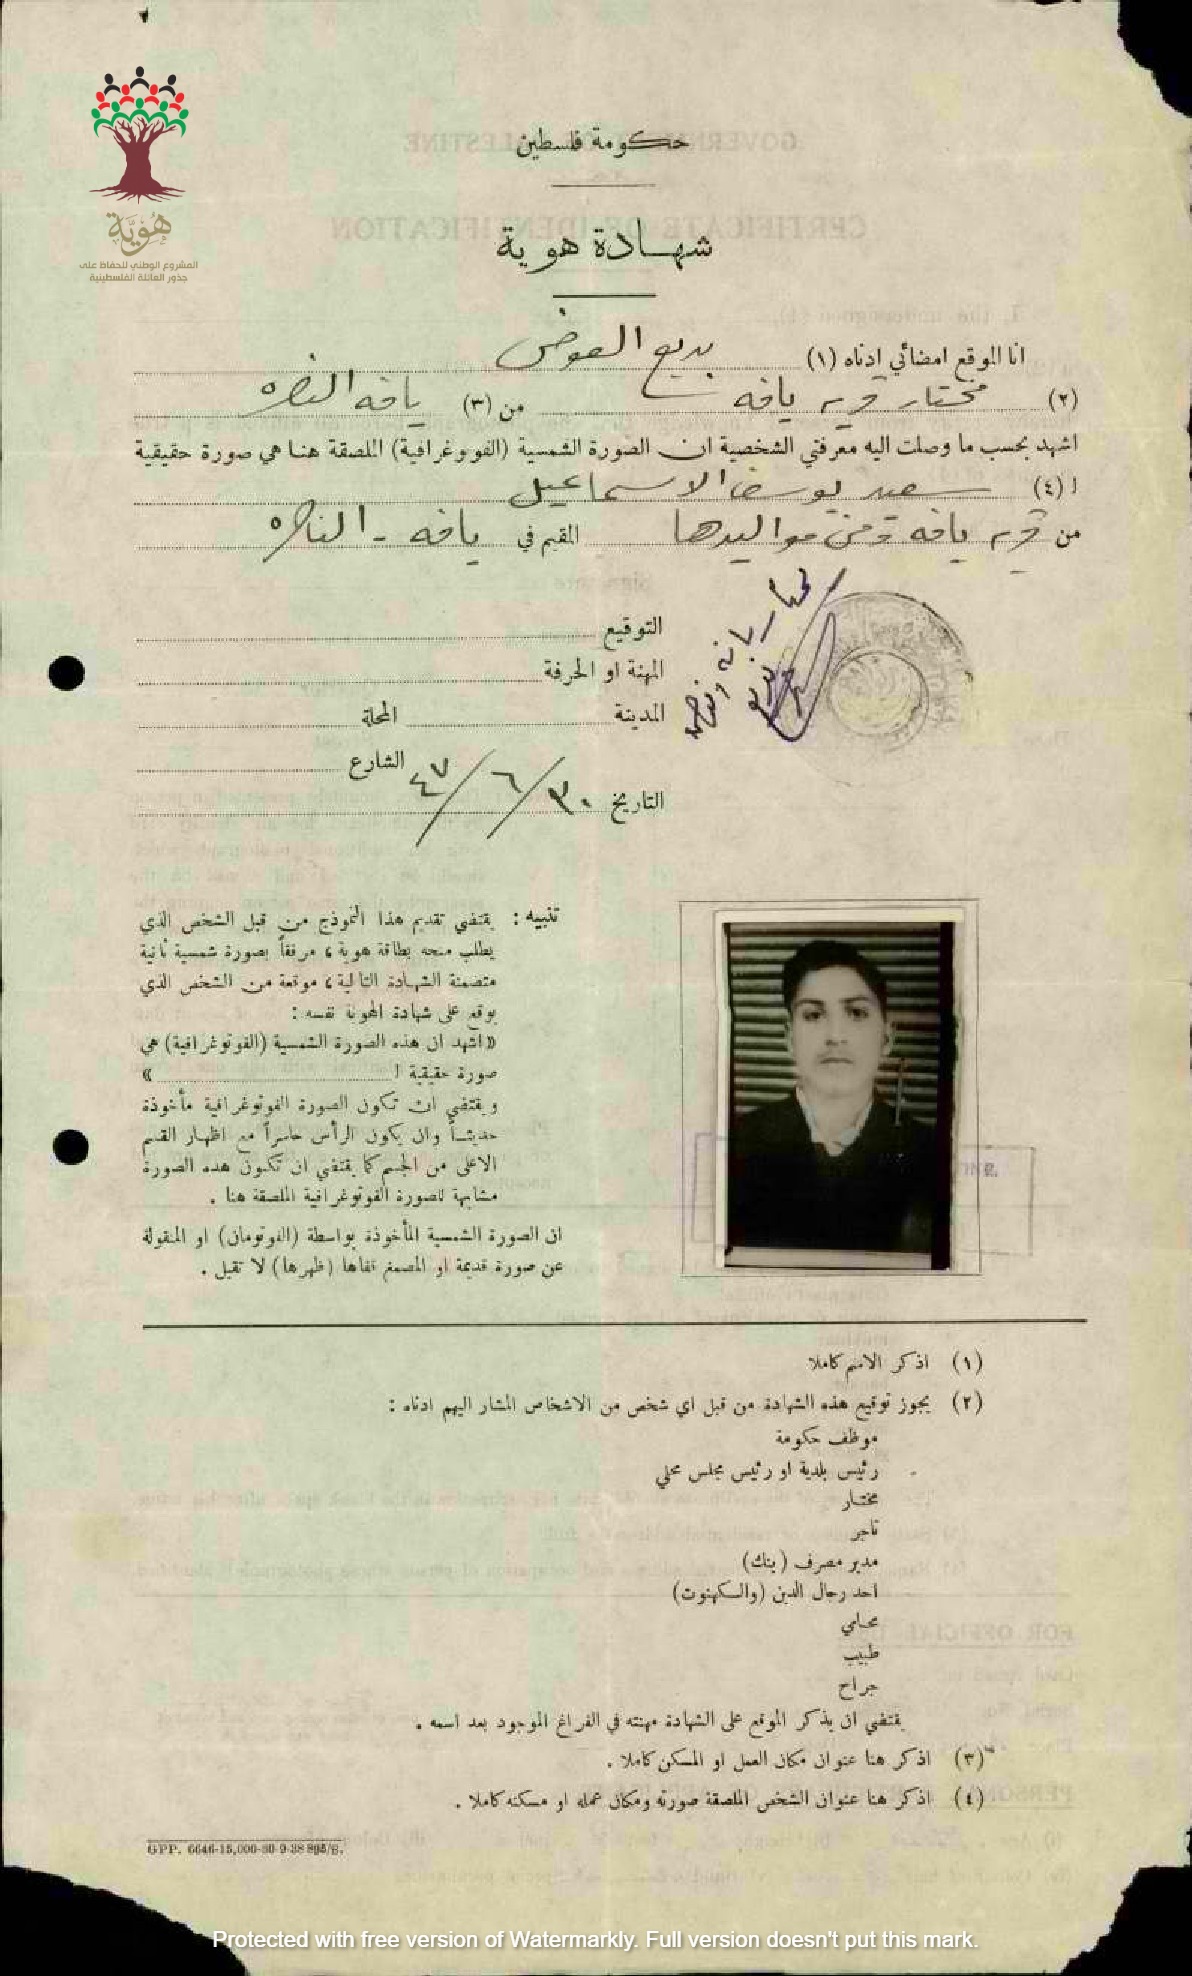 هُوِيَّة
المشروع الوطني للحفاظ على
جذور العائلة الفلسطينية
حكومة فلسطين
شهادة هوية
انا الموقع امضائي ادناه (١) بديع العوض
(٢) مختار قريه يافه من (٣) يافه الناصره
اشهد بحسب ما وصلت اليه معرفتي الشخصية ان الصورة الشمسية (الفوتوغرافية) الملصقة هنا هي صورة حقيقية
ا (٤) سعيد يوسف الاسماعيل
من قريه يافه ومن مواليدها المقيم في يافه - الناصره
التوقيع
المهنة او الحرفة
المدينة المحلة
الشارع
التاريخ ٣٠/٦/٤٧
تنبيه : يقتضي تقديم هذا النموذج من قبل الشخص الذي
يطلب منحه بطاقة هوية ، مرفقاً بصورة شمسية ثانية
متضمنة الشهادة التالية ، موقعة من الشخص الذي
يوقع على شهادة الهوية نفسه :
« اشهد ان هذه الصورة الشمسية (الفوتوغرافية) هي
صورة حقيقية ا »
ويقتضي ان تكون الصورة الفوتوغرافية مأخوذة
حديثاً وان يكون الرأس حاسراً مع اظهار القسم
الاعلى من الجسم كما يقتضي ان تكون هذه الصورة
مشابهة للصورة الفوتوغرافية الملصقة هنا .
ان الصورة الشمسية المأخوذة بواسطة (الفوتومان) او المنقولة
عن صورة قديمة او المصمغ قفاها (ظهرها) لا تقبل .
(١) اذكر الاسم كاملا
(٢) يجوز توقيع هذه الشهادة من قبل اي شخص من الاشخاص المشار اليهم ادناه :
موظف حكومة
رئيس بلدية او رئيس مجلس محلي
مختار
تاجر
مدير مصرف (بنك)
احد رجال الدين (والكهنوت)
محامي
طبيب
جراح
يقتضي ان يذكر الموقع على الشهادة مهنته في الفراغ الموجود بعد اسمه .
(٣) اذكر هنا عنوان مكان العمل او المسكن كاملا .
(٤) اذكر هنا عنوان الشخص الملصقة صورته ومكان عمله او مسكنه كاملا .
GPP. 6646-15,000-30-9-38 895/S.
Protected with free version of Watermarkly. Full version doesn't put this mark.